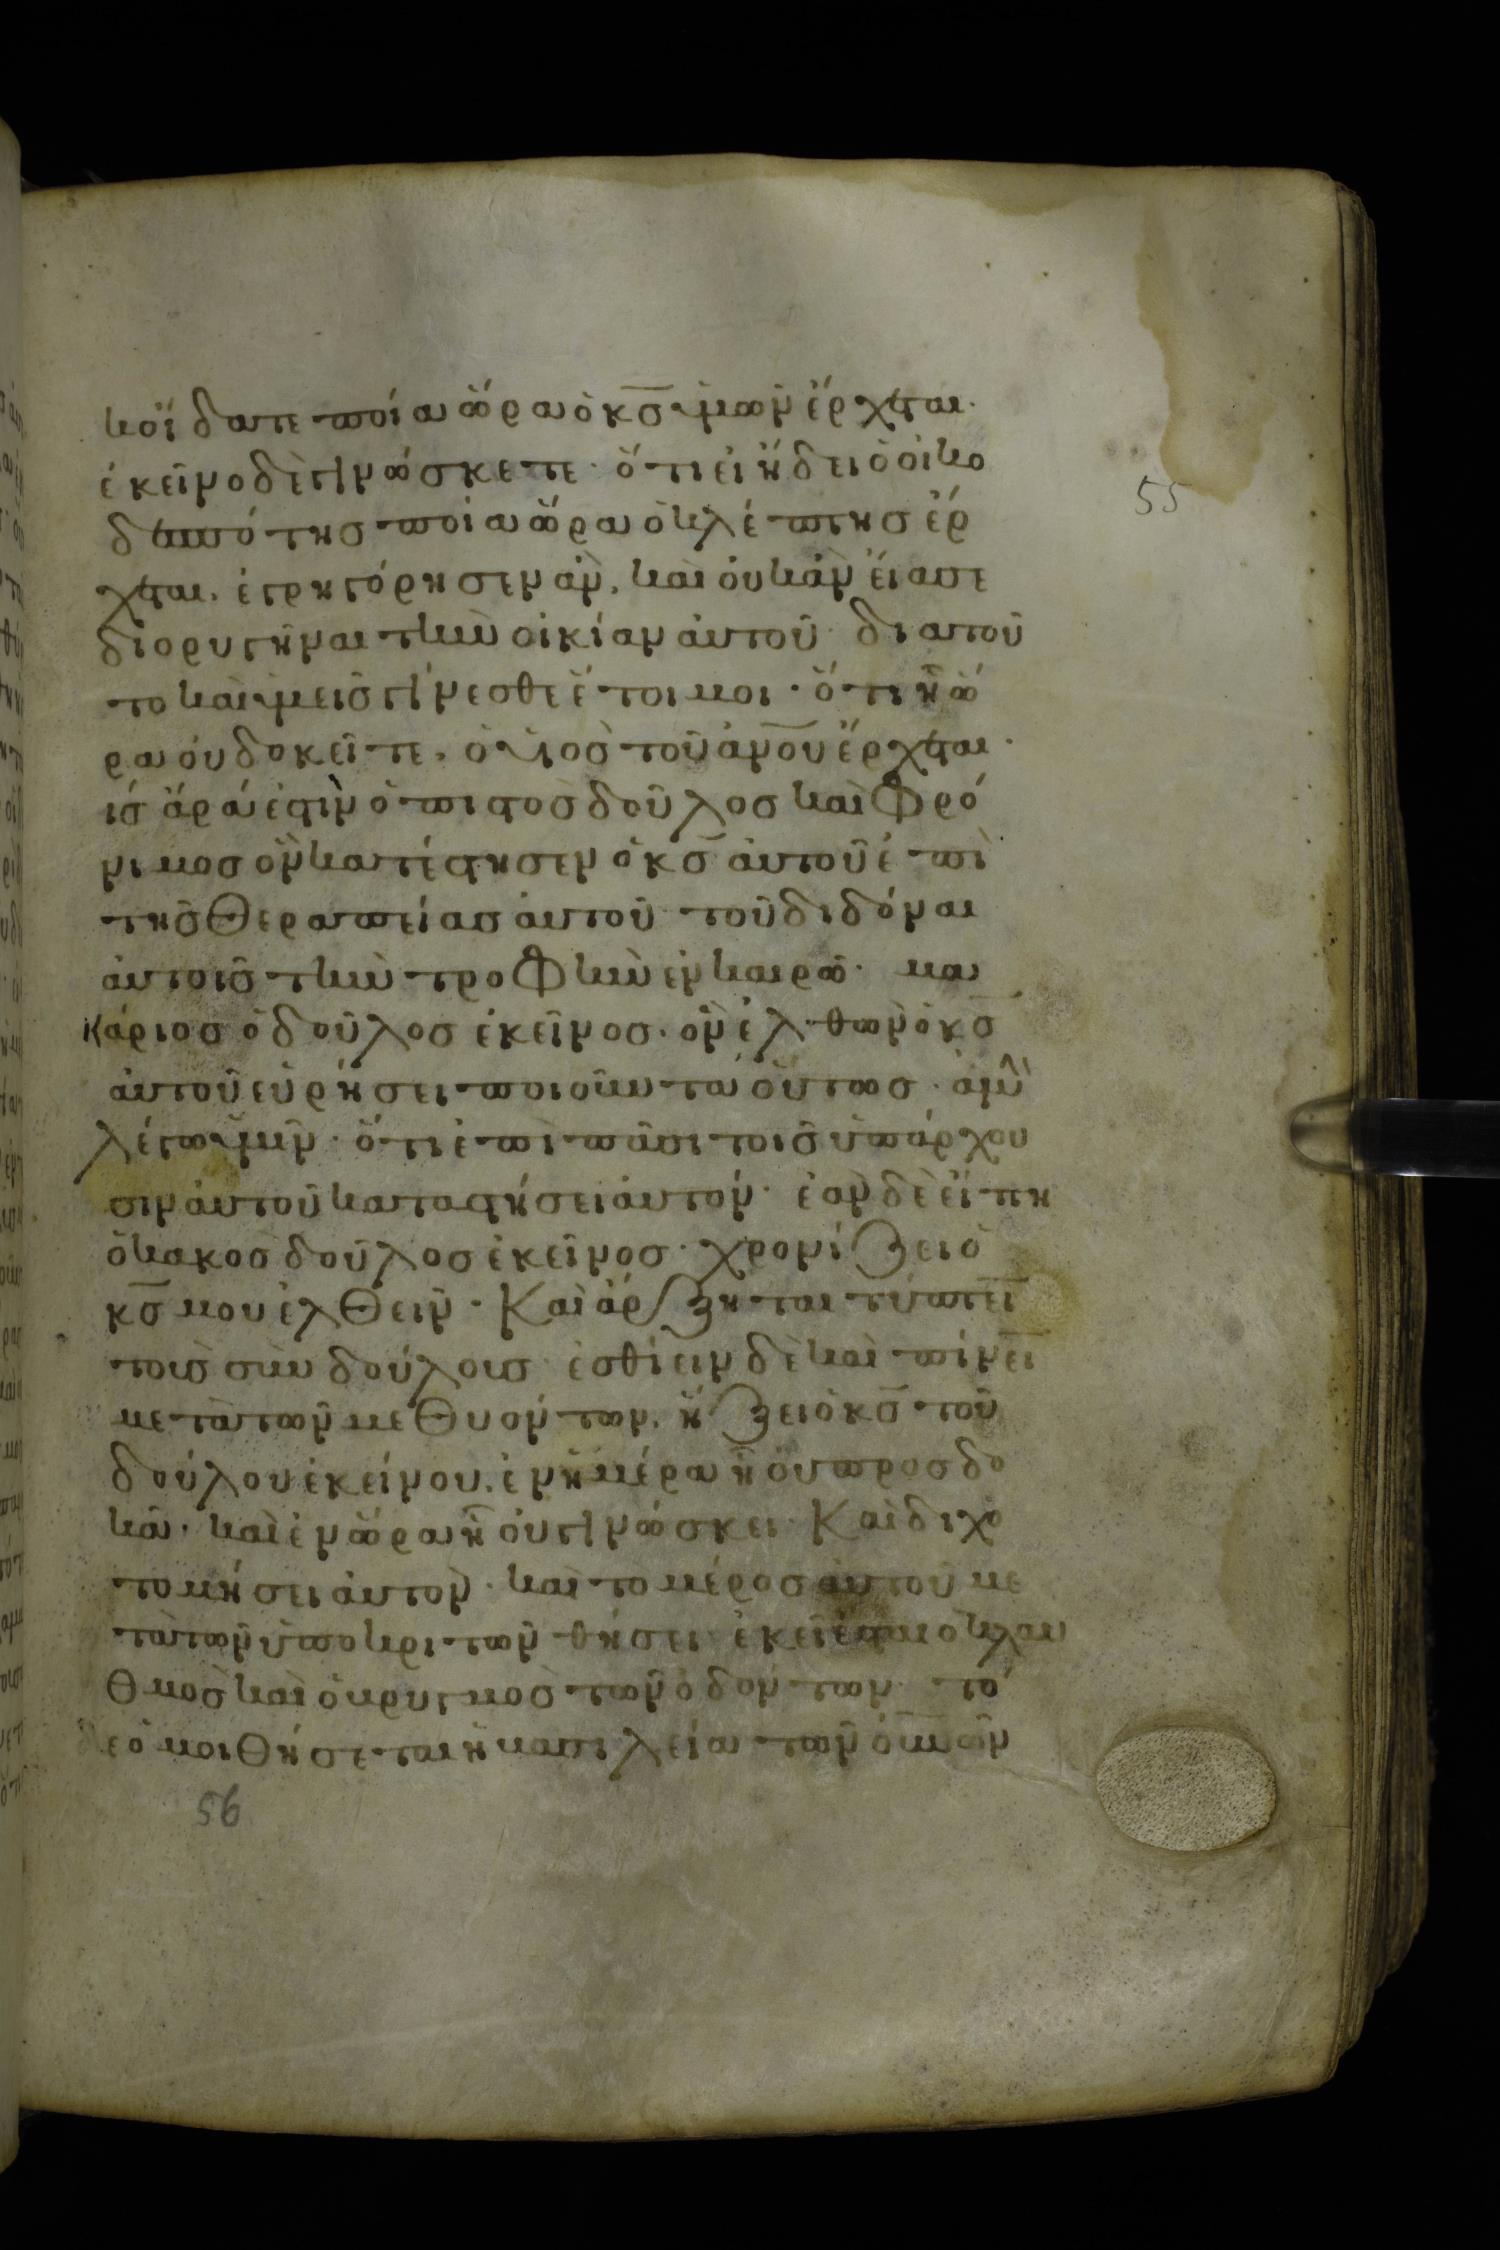 κ οἴδατε ποία ὥρα ὁ κ̅σ̅ ὑμῶν ἔρχεται·
55
ἐκεῖνο δὲ γινώσκετε· ὅτι εἰ ἤδει ὁ οἰκο
δεσπότησ ποία ὥρα ὁ κλέπτησ ἔρ
χεται, ἐγρηγόρησεν ἀν, καὶ οὐκ ἀν εἴασε
διορυγῆναι τὴν οἰκίαν αὐτοῦ· διατοῦ
το καὶ ὑμεῖσ γίνεσθε ἕτοιμοι· ὅτι ἧ ὥ
ρα οὐ δοκεῖτε, ὁ υἱὸσ τοῦ α̅ν̅ο̅υ̅ ἔρχεται·
τίσ ἄρά ἐστὶν ὁ πιστοσ δοῦλοσ καὶ φρό
νιμοσ ὃν κατέστησεν ὁ κ̅σ̅ αὐτοῦ ἐπὶ
τῆσ θεραπείασ αὐτοῦ τοῦ διδόναι
αὐτοῖσ τὴν τροφὴν ἐν καιρῶ· μα
κάριοσ ὁ δοῦλοσ ἐκεῖνοσ· ὃν ἐλθων ὁ κ̅σ̅
αὐτοῦ εὑρήσει ποιοῦντα οὕτωσ· ἀμὴ
λέγω ὑμῖν· ὅτι ἐπὶ πᾶσι τοῖσ ὑπάρχου
σιν αὐτοῦ καταστήσει αὐτόν· ἐὰν δὲ εἴπη
ὁ κακοσ δοῦλοσ ἐκεῖνοσ· χρονίζει ὁ
κ̅σ̅ μου ἐλθεῖν· Καὶ ἄρξηται τύπτει̅
τουσ συνδούλουσ ἐσθίειν δὲ καὶ πίνει̅
μετὰ τῶν μεθυόντων, ἥξει ὁ κ̅σ̅ τοῦ
δούλου ἐκείνου, ἐν ἡμέρα ἧ οὐ προσδο
κᾶ, καὶ ἐν ὥρα ἧ οὐ γινώσκει· Καὶ διχο
τομήσει αὐτον· καὶ το μέροσ αὐτοῦ με
τὰ τῶν ὑποκριτῶν θήσει ἐκεῖ ἔσται ὁ κλαυ
θμοσ καὶ ὁ βρυγμοσ τῶν ὀδόντων τό
τε ὁμοιθήσεται ἡ βασιλεία τῶν ο̅υ̅ν̅ῶν
56